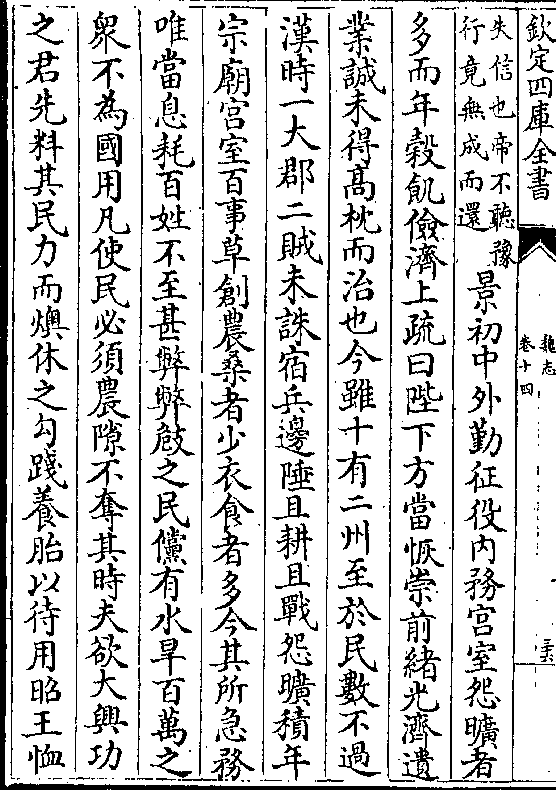 欽定四庫全書
魏志
卷十四
失信也帝不聽豫
行竟無成而還
景初中外勤征役內務宮室怨曠者
多而年穀飢儉濟上疏曰陛下方當恢崇前緒光濟遺
業誠未得高枕而治也今雖十有二州至於民數不過
漢時一大郡二賊未誅宿兵邊陲且耕且戰怨曠積年
宗廟宮室百事草創農桑者少衣食者多今其所急務
唯當息耗百姓不至甚弊弊攰之民儻有水旱百萬之
衆不為國用凡使民必須農隙不奪其時夫欲大興功
之君先料其民力而燠休之勾踐養胎以待用昭王恤